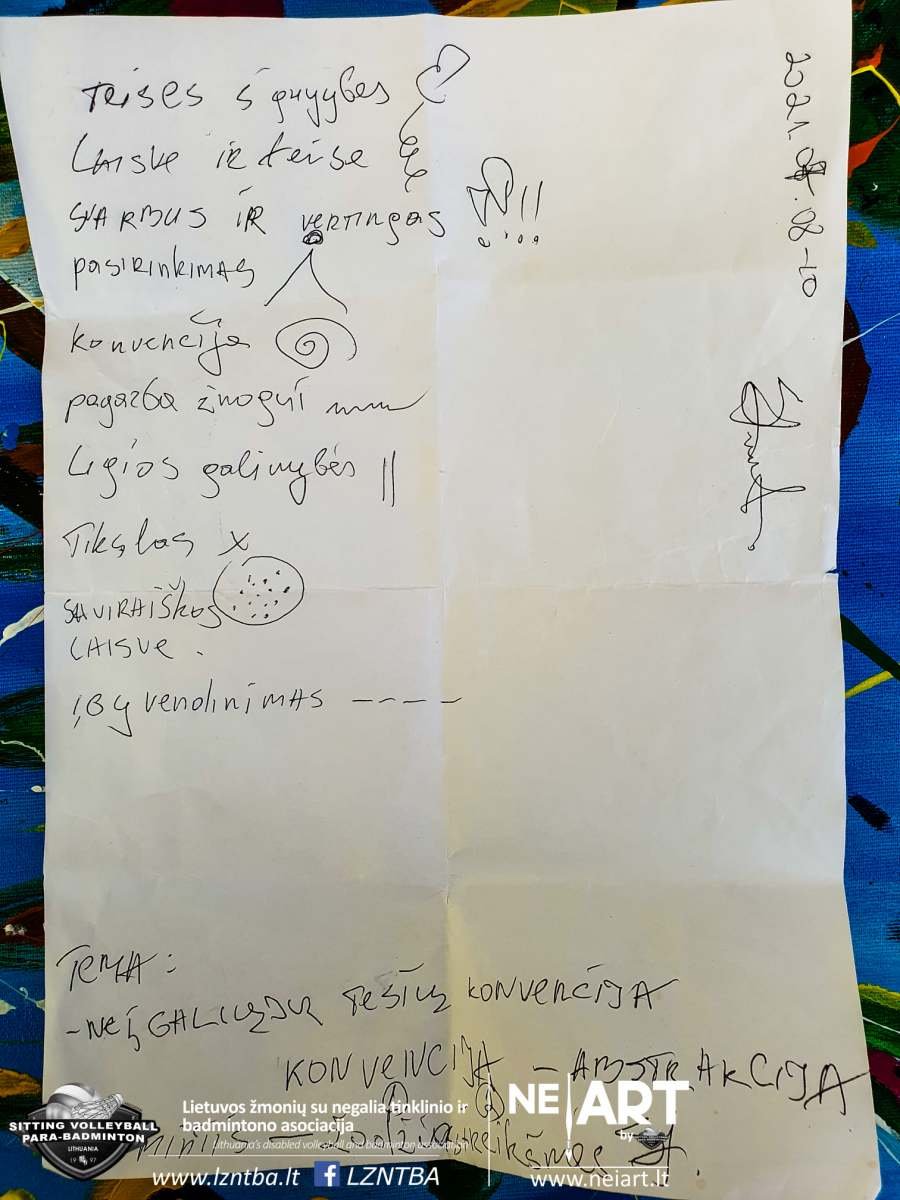 TEISĖS
LAISVĖ IR teisė
SVARBUS IR VERTINGAS
pasirinkimas
Konvencija
pagarba žmogui
Lygios galimybės ||
Tikslas X
SAVIRAIŠKOS
LAISVĖ.
ĮGYvendinimas ----
TEMA:
-NEĮGALIŲJŲ TEŠIŲ KONVENCIJA
KONVENCIJA - ABSTRAKCIJA
SITTING VOLLEYBALL
PARA-BADMINTON
LITHUANIA
1997
Lietuvos žmonių su negalia tinklinio ir
badmintono asociacija
Lithuania's disabled volleyball and badminton association
www.lzntba.lt f LZNTBA
NE|ART
by
www.neiart.lt